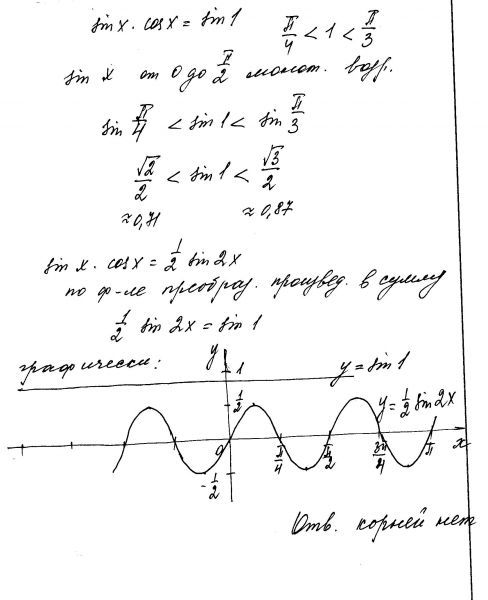 sin x · cos x = sin 1    π/4 < 1 < π/3
sin x от 0 до π/2 монот. возр.
sin π/4 < sin 1 < sin π/3
√2/2 < sin 1 < √3/2
≈0,71    ≈0,87
sin x · cos x = 1/2 sin 2x
по ф-ле преобраз. произвед. в сумму
1/2 sin 2x = sin 1
графически:
y
1
y = sin 1
1/2
y = 1/2 sin 2x
0
π/4
π/2
3π/4
π
x
-1/2
Отв. корней нет